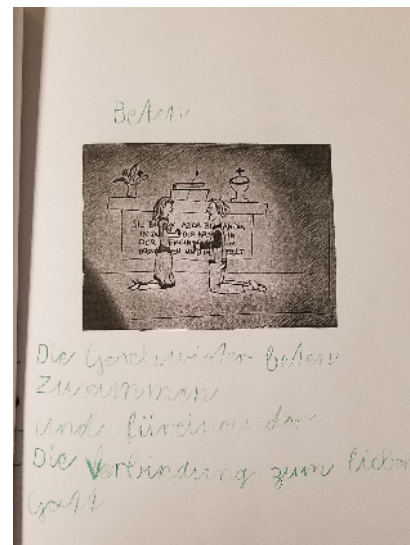 Beten
SIE
IN
DER
Die Geschwister beten
Zusammen
und füreinander
Die Verbindung zum lieben
Gott